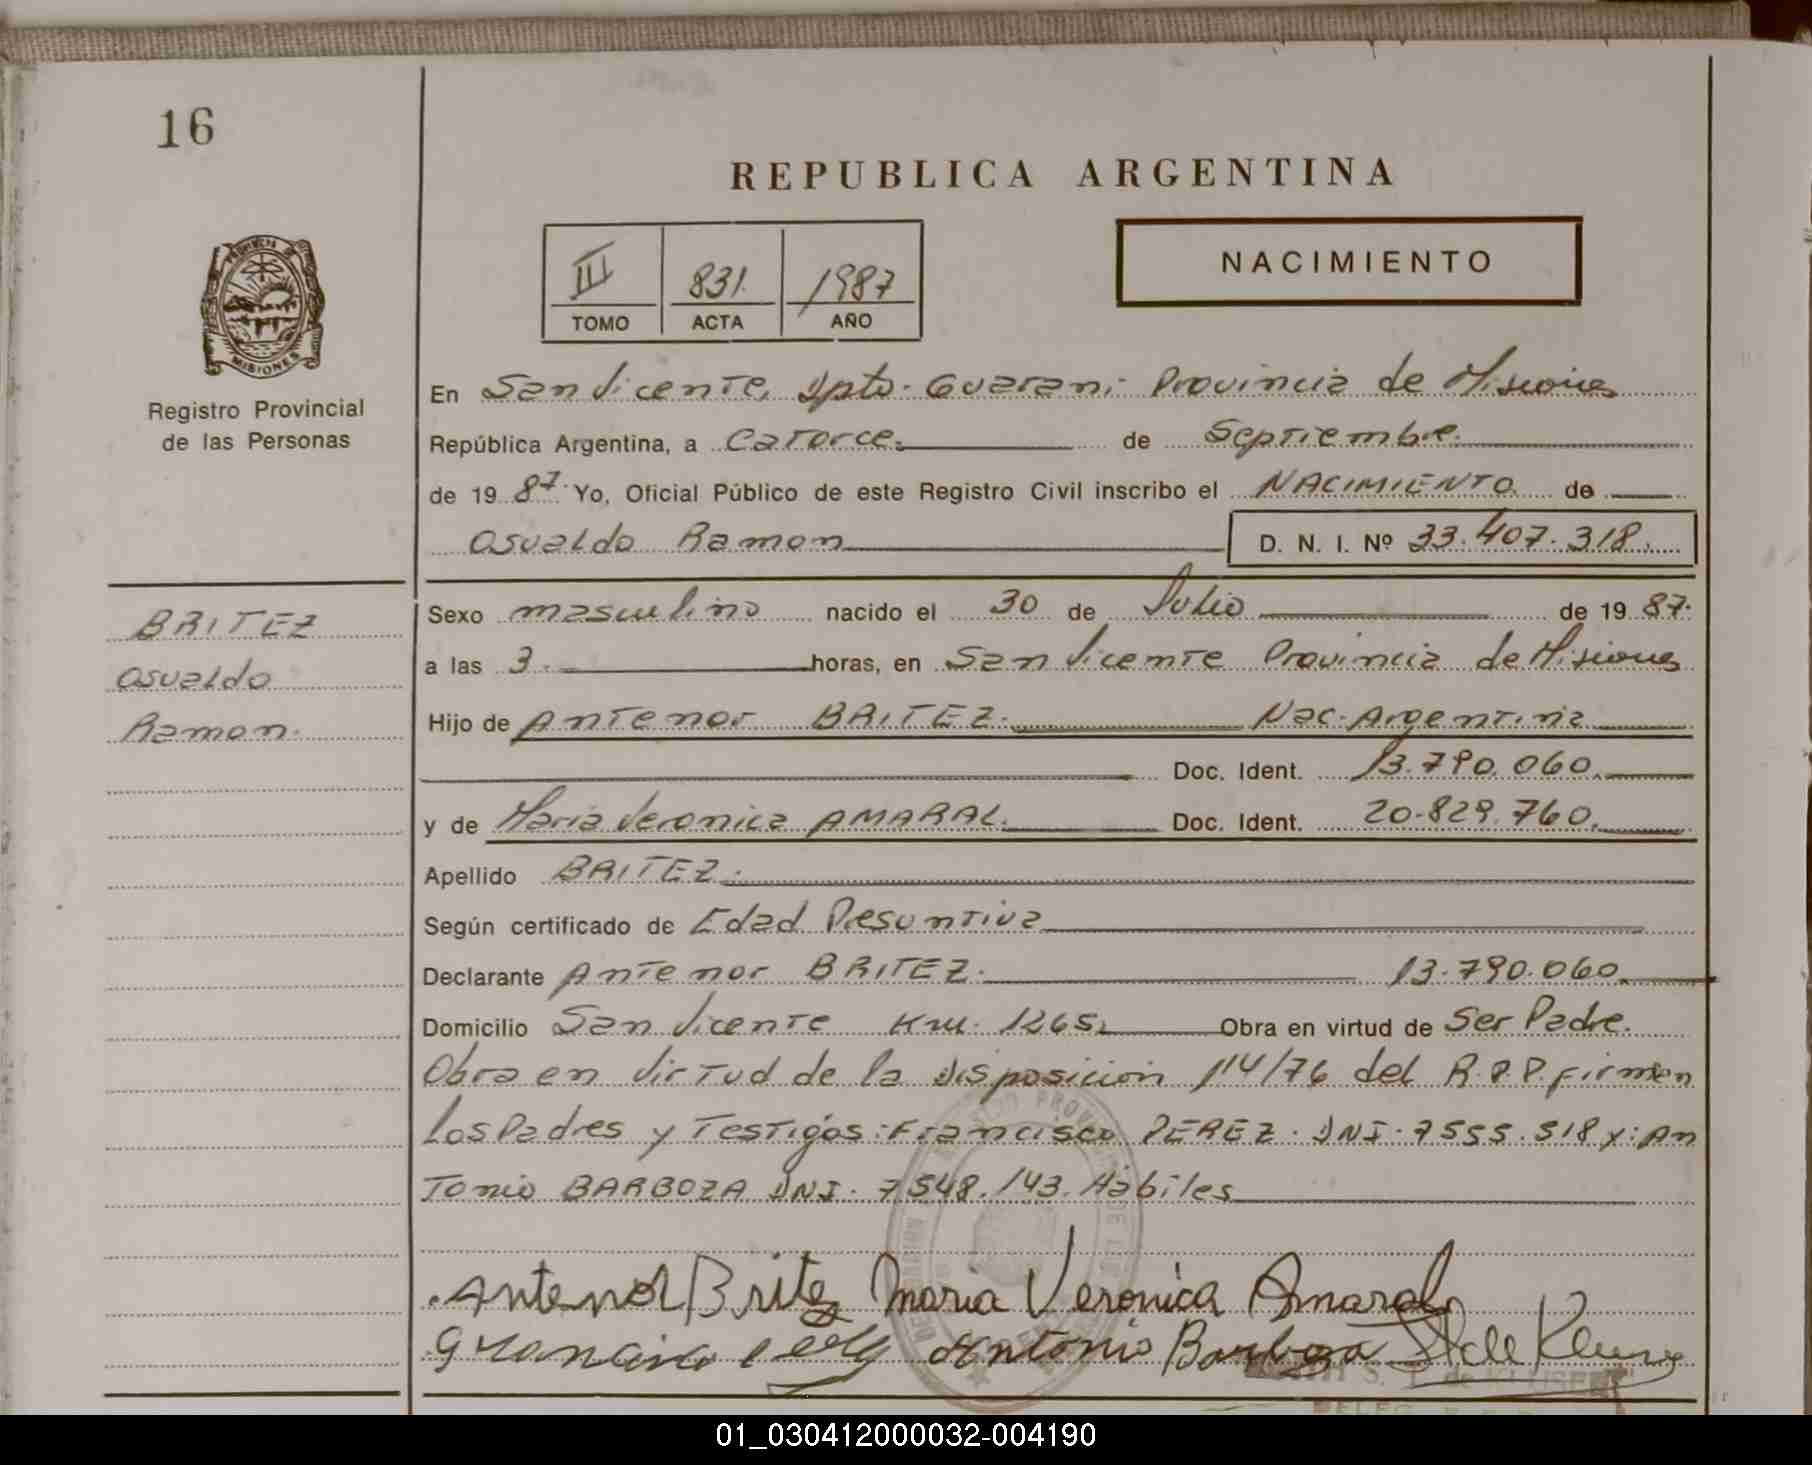 16
REPUBLICA ARGENTINA
NACIMIENTO
III 831. 1987
TOMO ACTA AÑO
MISIONES
Registro Provincial
de las Personas
En San Vicente, Dpto. Guarani Provincia de Misiones
República Argentina, a Catorce. de Septiembre.
de 19 87. Yo, Oficial Público de este Registro Civil inscribo el NACIMIENTO de
Osvaldo Ramon D. N. I. Nº 33.407.318.
BRITEZ
Osvaldo
Ramon.
Sexo masculino nacido el 30 de Julio de 19 87.
a las 3. horas, en San Vicente Provincia de Misiones
Hijo de Antenor BRITEZ. Nac. Argentina
Doc. Ident. 13.790.060.
y de Maria Veronica AMARAL. Doc. Ident. 20.829.760.
Apellido BRITEZ.
Según certificado de Edad Presuntiva
Declarante Antenor BRITEZ. 13.790.060.
Domicilio San Vicente Km. 1265. Obra en virtud de Ser Padre.
Obra en Virtud de la Disposicion 114/76 del R.P.P. firman
Los Padres y Testigos: Francisco PEREZ. DNI. 7555.518 y: An
Tonio BARBOZA DNI. 7548.143. Habiles
Antenor Britez Maria Veronica Amaral
Antonio Barboza
01_030412000032-004190